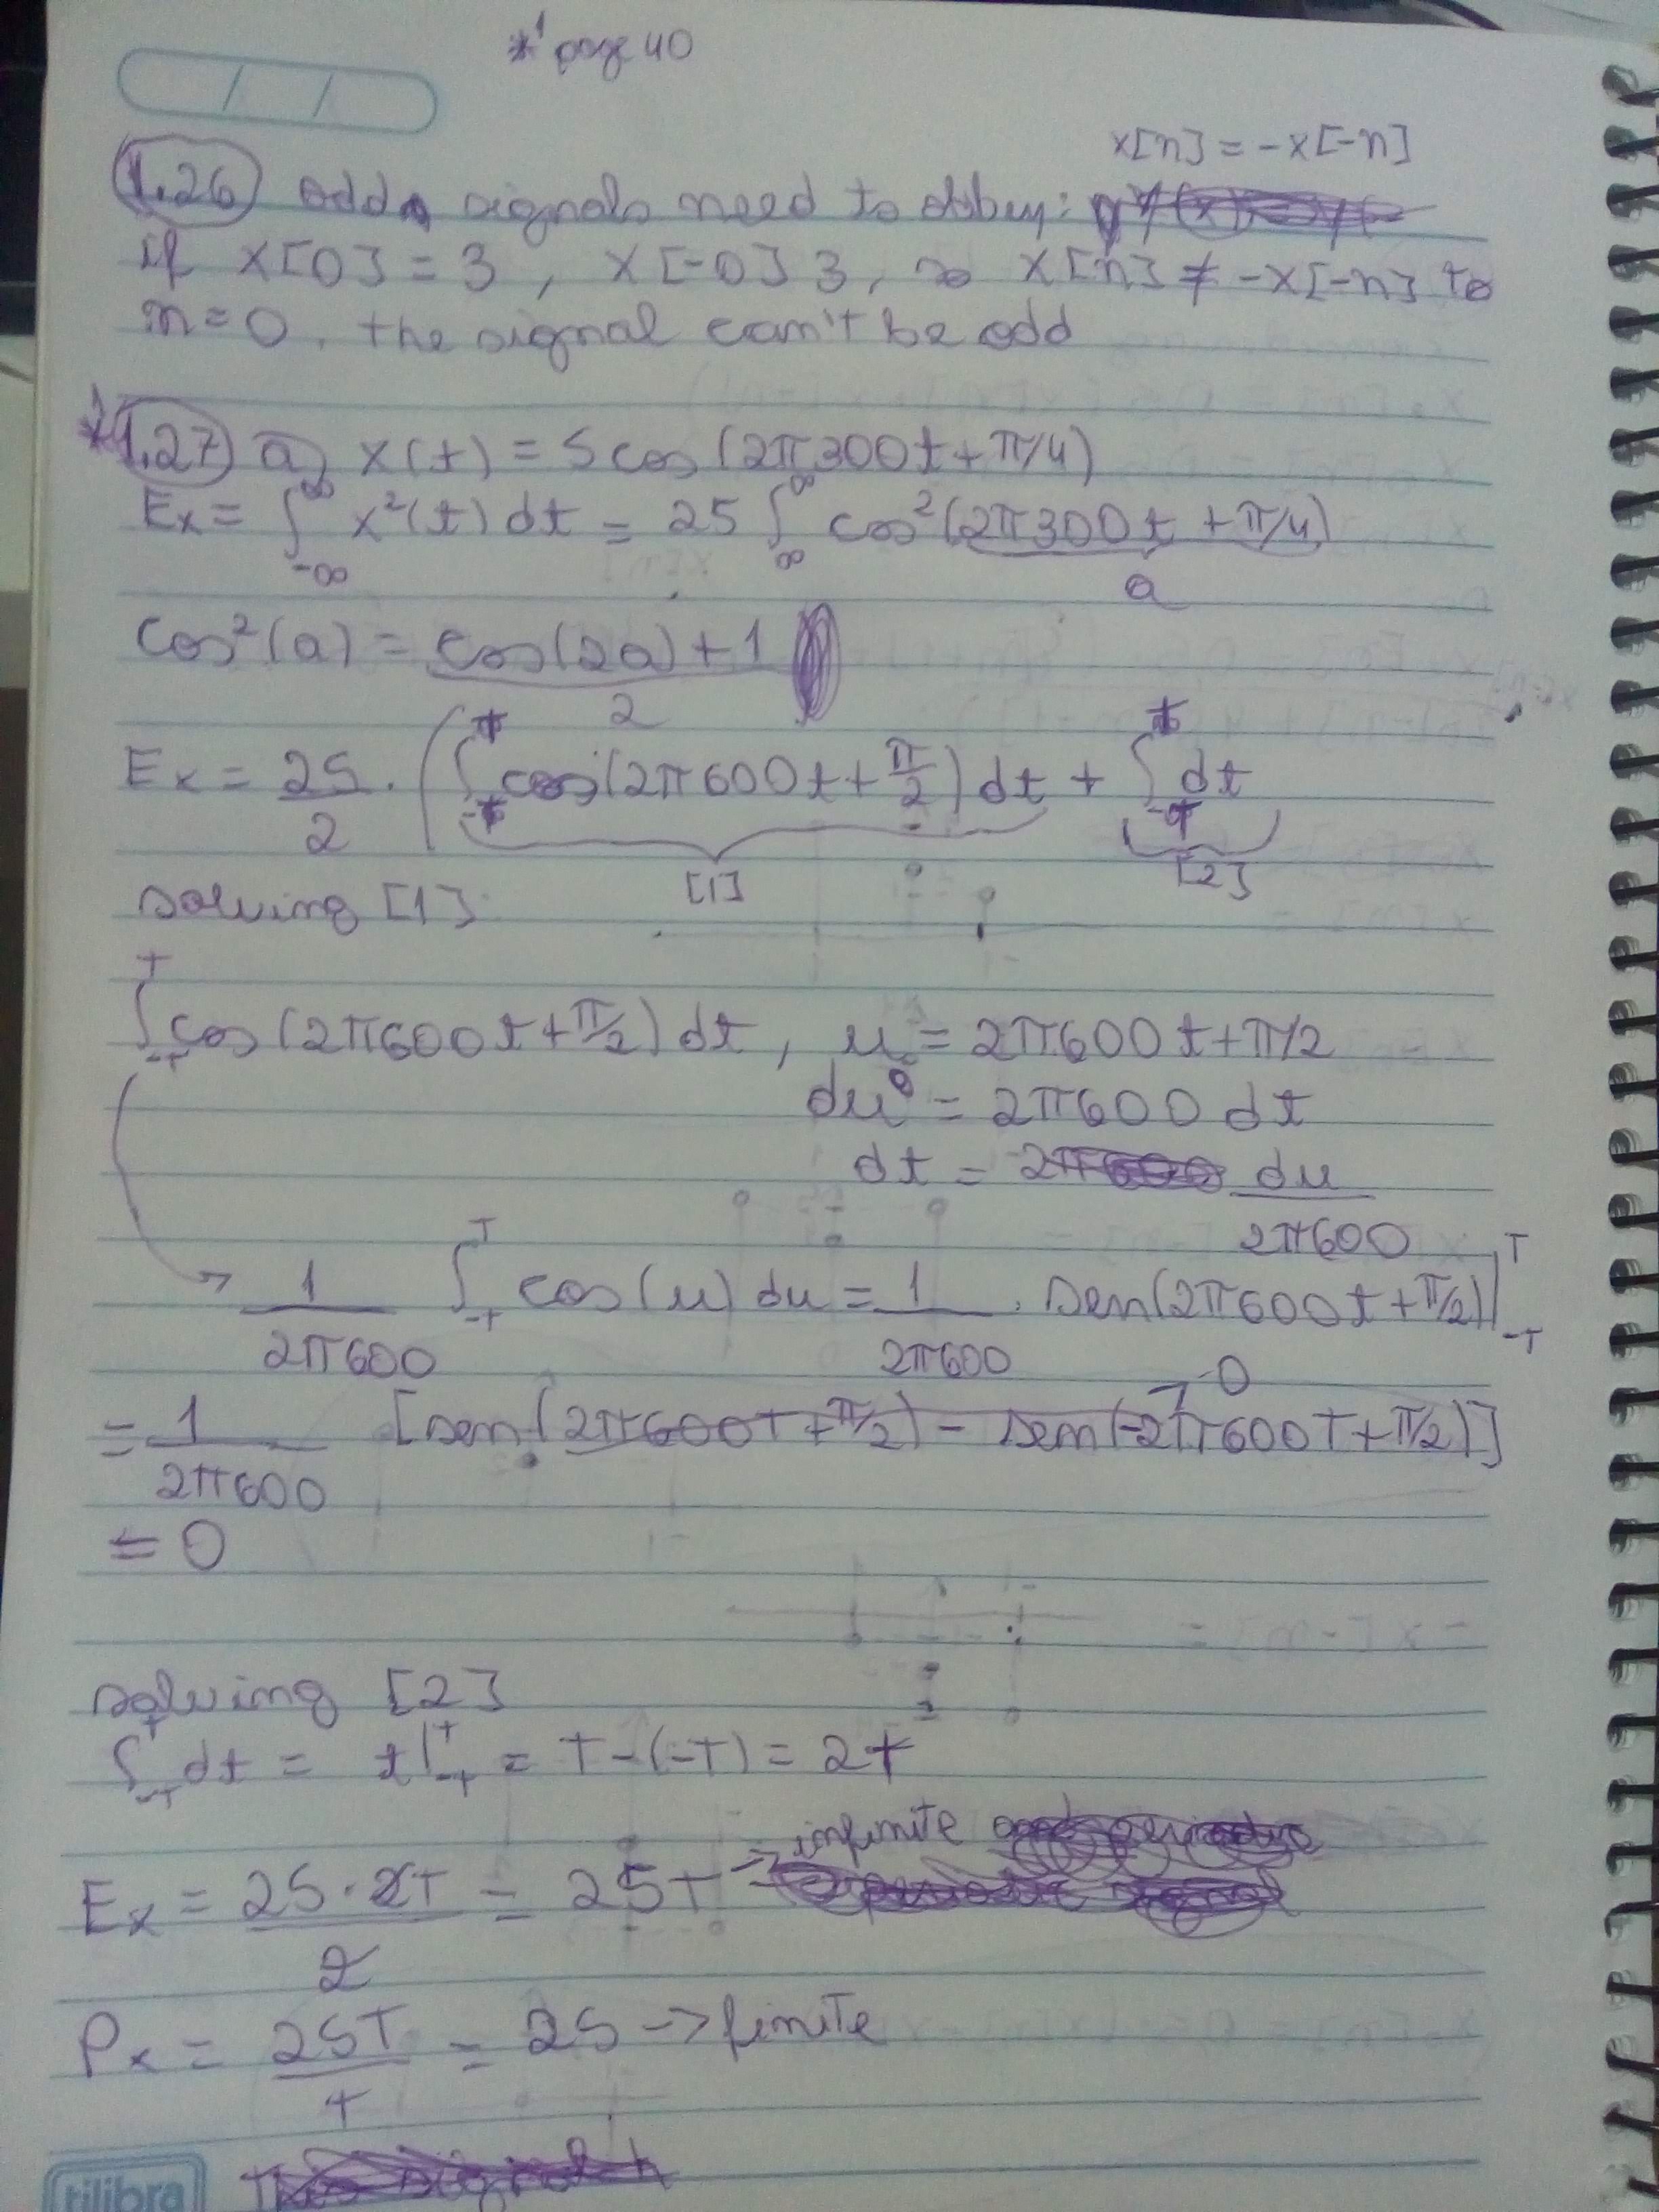 *¹ page 40
x[n] = -x[-n]
1.26 odd signals need to obbey:
if x[0] = 3, x[-0] 3, so x[n] ≠ -x[-n] to
n=0. the signal can't be odd
*¹ 1.27 a) x(t) = 5cos(2π300t+π/4)
Ex = ∫_{-∞}^{∞} x²(t) dt = 25 ∫_{∞}^{∞} cos²(2π300t + π/4)
a
cos²(a) = (cos(2a)+1)/2
Ex = 25/2 . (∫_{-T}^{T} cos(2π600t+π/2)dt + ∫_{-T}^{T} dt
[1] [2]
solving [1]
∫_{-T}^{T} cos(2π600t+π/2)dt, u = 2π600t+π/2
du = 2π600 dt
dt = 2π600 du/2π600
→ 1/2π600 ∫_{-T}^{T} cos(u) du = 1/2π600 . sen(2π600t+π/2)|_{-T}^{T}
= 1/2π600 [sen(2π600T+π/2) - sen(-2π600T+π/2)] → 0
= 0
solving [2]
∫_{-T}^{T} dt = t|_{-T}^{T} = T-(-T) = 2T
Ex = 25.2T/2 = 25T → infinite
Px = 25T/T = 25 → finite
tilibra